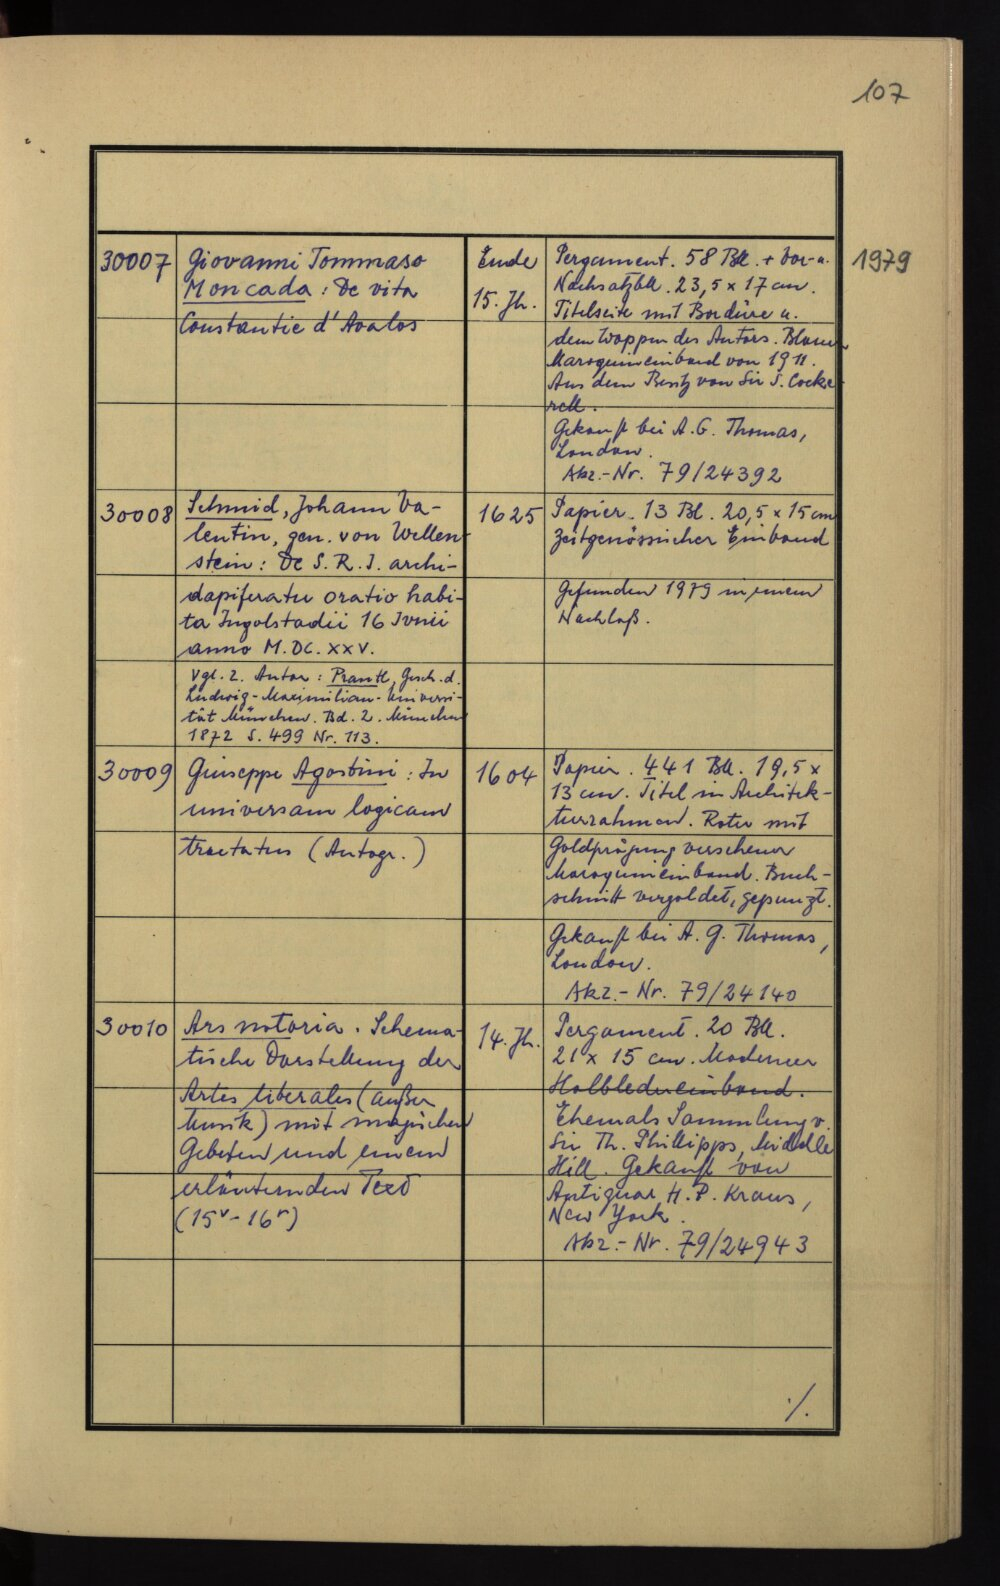 107
1979
30007
Giovanni Tommaso
Moncada : De vita
Constantie d'Avalos
Ende
15. Jh.
Pergament. 58 Bll. + Vor- u.
Nachsatzbll. 23,5 x 17 cm.
Titelseite mit Bordüre u.
dem Wappen des Autors. Blauer
Maroquineinband von 1911.
Aus dem Besitz von Sir S. Cocke-
rell.
Gekauft bei A. G. Thomas,
London.
Akz.-Nr. 79/24392
30008
Schmid, Johann Va-
lentin, gen. von Wellen-
stein : De S. R. I. archi-
dapiferatu oratio habi-
ta Ingolstadii 16 Ivnii
anno M. DC. XXV.
Vgl. z. Autor : Prantl, Gesch. d.
Ludwig-Maximilian-Universi-
tät München. Bd. 2. München
1872 S. 499 Nr. 113.
1625
Papier. 13 Bl. 20,5 x 15 cm
Zeitgenössischer Einband
Gefunden 1979 in einem
Nachlaß.
30009
Giuseppe Agostini : In
universam logicam
tractatus (Autogr.)
1604
Papier. 441 Bll. 19,5 x
13 cm. Titel in Architek-
turrahmen. Roter mit
Goldprägung versehener
Maroquineinband. Buch-
schnitt vergoldet, gepunzt.
Gekauft bei A. G. Thomas,
London.
Akz.-Nr. 79/24140
30010
Ars notoria. Schema-
tische Darstellung der
Artes liberales (außer
Musik) mit magischen
Gebeten und einem
erläuternden Text
(15v-16r)
14. Jh.
Pergament. 20 Bll.
21 x 15 cm. Moderner
Halbledereinband.
Ehemals Sammlung v.
Sir Th. Phillipps, Middle
Hill. Gekauft von
Antiquar H. P. Kraus,
New York.
Akz.-Nr. 79/24943
./.